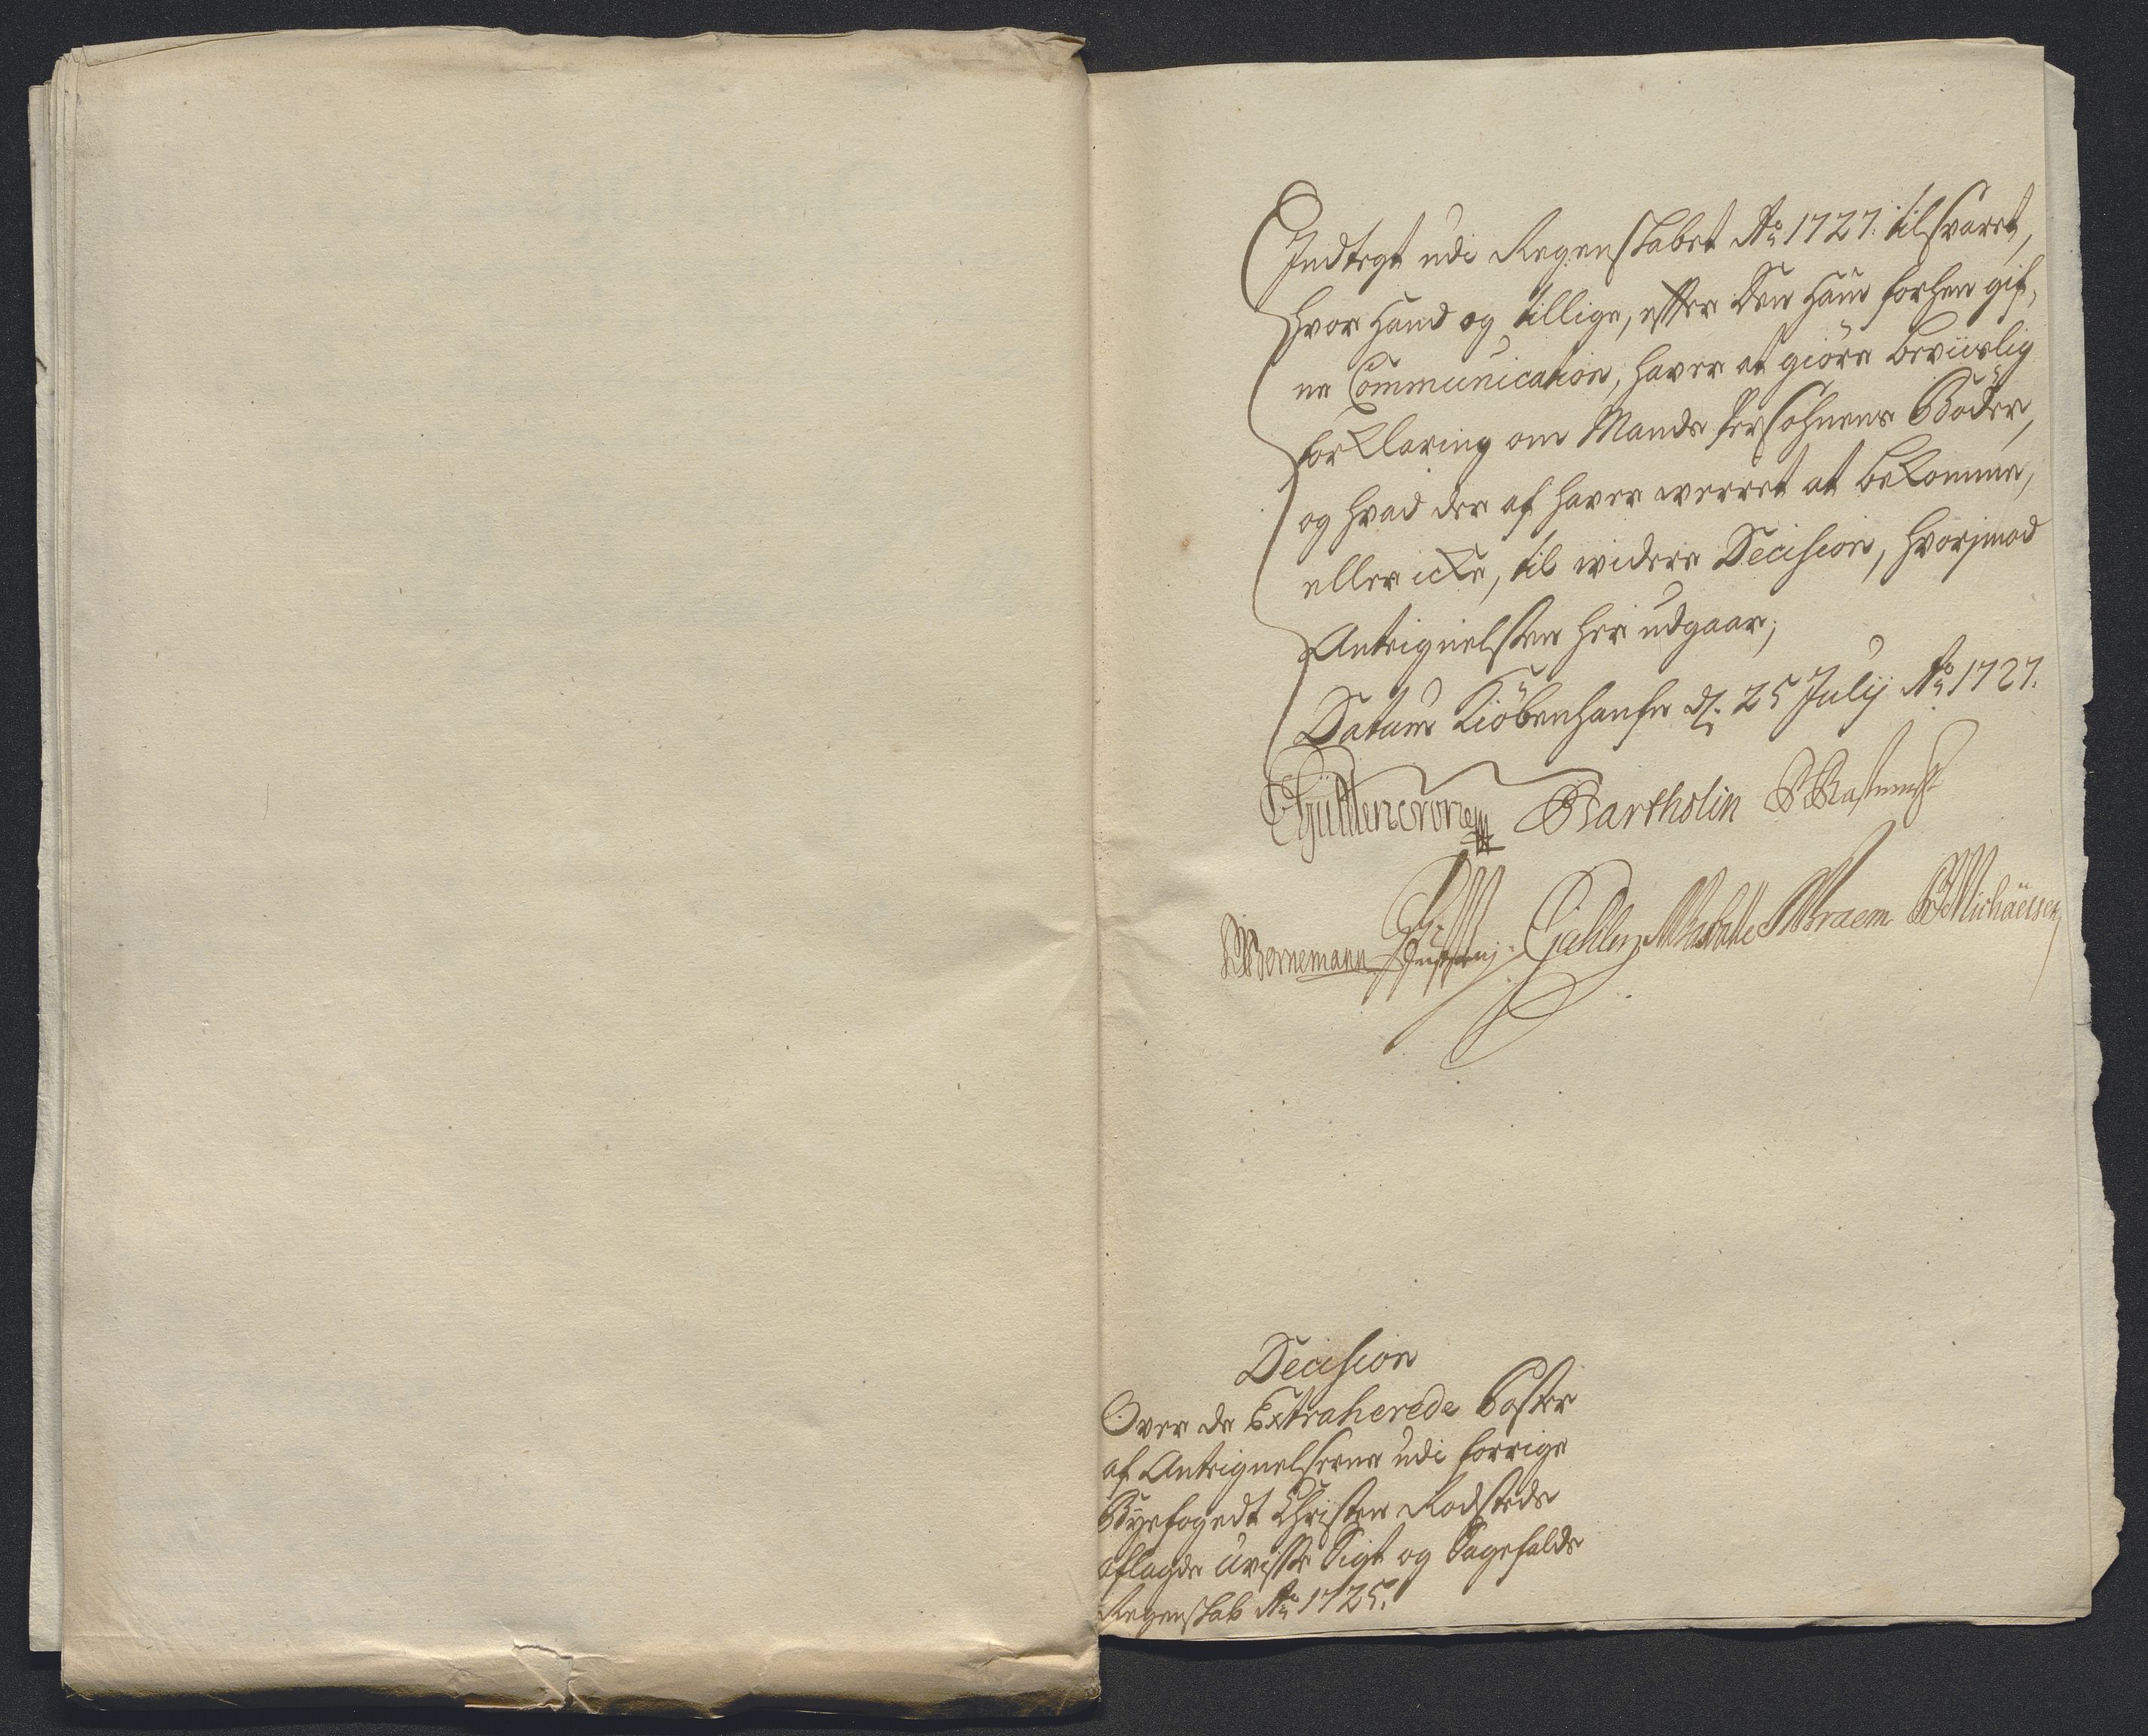 Indtegt udi Regenskabet Ao 1727. tilsvaret,
hvor hand og tillige, efter den ham forhen gif,
ne Communication, haver at giöre beviislig
forklaring om Mands Persohnens Böder,
og hvad der af haver werret at bekomme,
eller icke, til widere Decision, hvorjmod
Antegnelsen her udgaar;
Datum Kiöbenhaufn d. 25 Julij Ao 1727.
Güldencrone Bartholin
Bornemann Braem Michaelsen
Decision
Over de Extraherede Poster
af Antegnelserne udi forrige
Byefogedt Christen Rodsteds
aflagde Uvisse Sigt og Sagefalds
Regenskab Ao 1725.